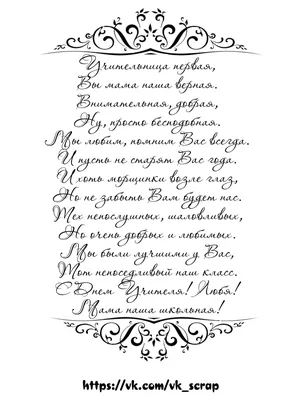 Учительница первая,
Вы мама наша верная.
Внимательная, добрая,
Ну, просто бесподобная.
Мы любим, помним Вас всегда.
И пусть не старят Вас года.
И хоть морщинки возле глаз,
Но не забыть Вам будет нас.
Тех непослушных, шаловливых,
Но очень добрых и любимых.
Мы были лучшими у Вас,
Тот непоседливый наш класс.
С Днем Учителя! Любя!
Мама наша школьная!
https://vk.com/vk_scrap